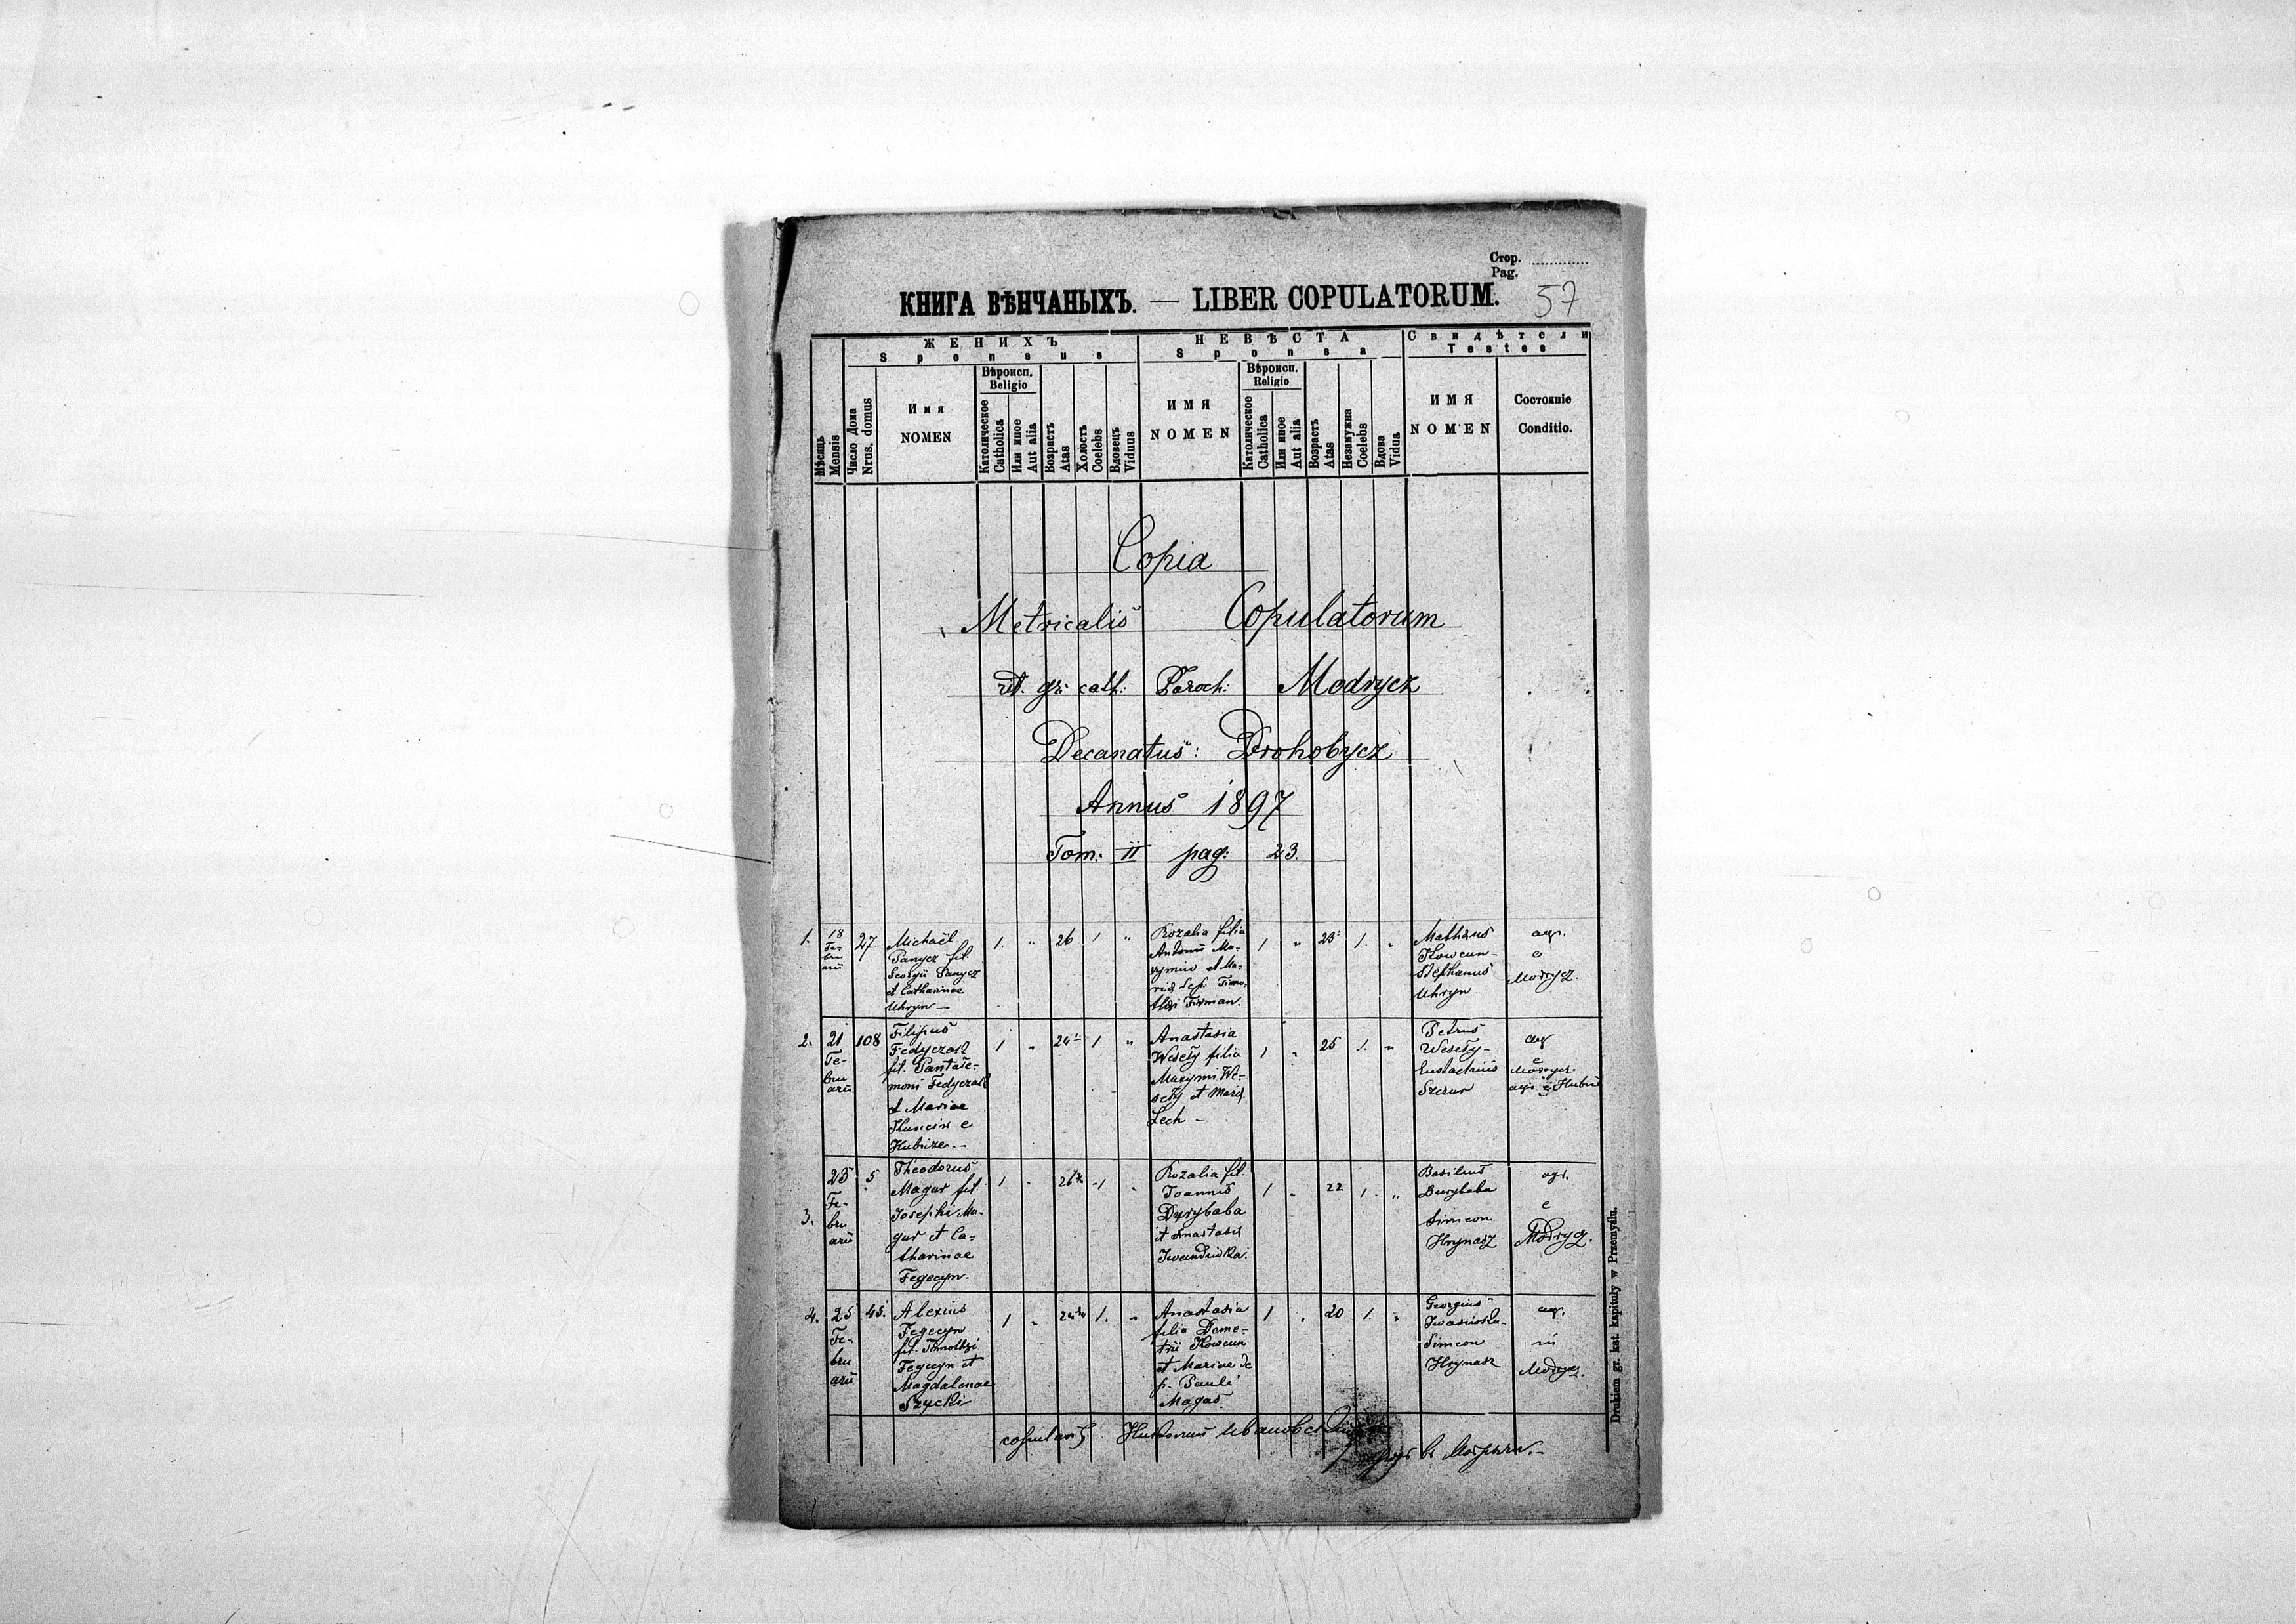 Стор.
Pag.
57
КНИГА ВѢНЧАНЫХЪ. — LIBER COPULATORUM.
ЖЕНИХЪ
Sponsus
НЕВѢСТА
Sponsa
Свидѣтели
Testes
Мѣсяць
Mensis
Число Дома
Nrus. domus
Имя
NOMEN
Вѣроисп.
Beligio
Католическое
Catholica
Или иное
Aut alia
Возрастъ
Atas
Холостъ
Coelebs
Вдовецъ
Viduus
ИМЯ
NOMEN
Вѣроисп.
Religio
Католическое
Catholica
Или иное
Aut alia
Возрастъ
Atas
Незамужна
Coelebs
Вдова
Vidua
ИМЯ
NOMEN
Состояніе
Conditio.
Copia
Metricalis Copulatorum
rit. gr. cath: Paroch: Modrycz
Decanatus: Drohobycz
Annus 1897
Tom: II pag: 23.
1.
18
Fe-
bru
arii
27
Michaël
Panycz fil.
Georgii Panycz
et Catharinae
Uhryn —
1. " 26 1 "
Rozalia filia
Antonii Ma-
et Ma-
Timo,
Firman.
1 " 23 1. "
Mathaeus
Kowcun -
Stephanus
Uhryn
agr.
e
Modrycz.
2.
21
Fe-
bru
arii
108
Filipus
Fedyczak
fil. Pantale-
moni Fedyczak
et Mariae
e
1 " 24 1 "
Anastasia
Weseły filia
Maxymi We-
seły et Mariae
Lech -
1 " 25 1. "
Petrus
Weseły -
Eustachius
Szczur
agr
e
Modrycz.
3.
23
Fe-
bru
arii
5
Theodorus
Magur fil.
Josephi Ma-
gur et Ca-
tharinae
Fegecyn.
1 " 26 1 "
Rozalia fil.
Joannis
Dyrybaba
et Anastasiae
1 " 22 1. "
Basilius
Durybaba
Simeon
Hrynasz
agr.
e
Modrycz.
4.
25
Fe-
bru
arii
45.
Alexius
Fegecyn
fil. Timothei
Fegecyn et
Magdalenae
Szycki
1 " 24 1. "
Anastasia
filia Deme-
trii Kowcun
et Mariae de
p. Pauli
Magas.
1 " 20 1. "
Georgius
Simeon
Hrynasz
agr.
in
Modrycz.
Drukiem gr. kat. kapituły w Przemyślu.